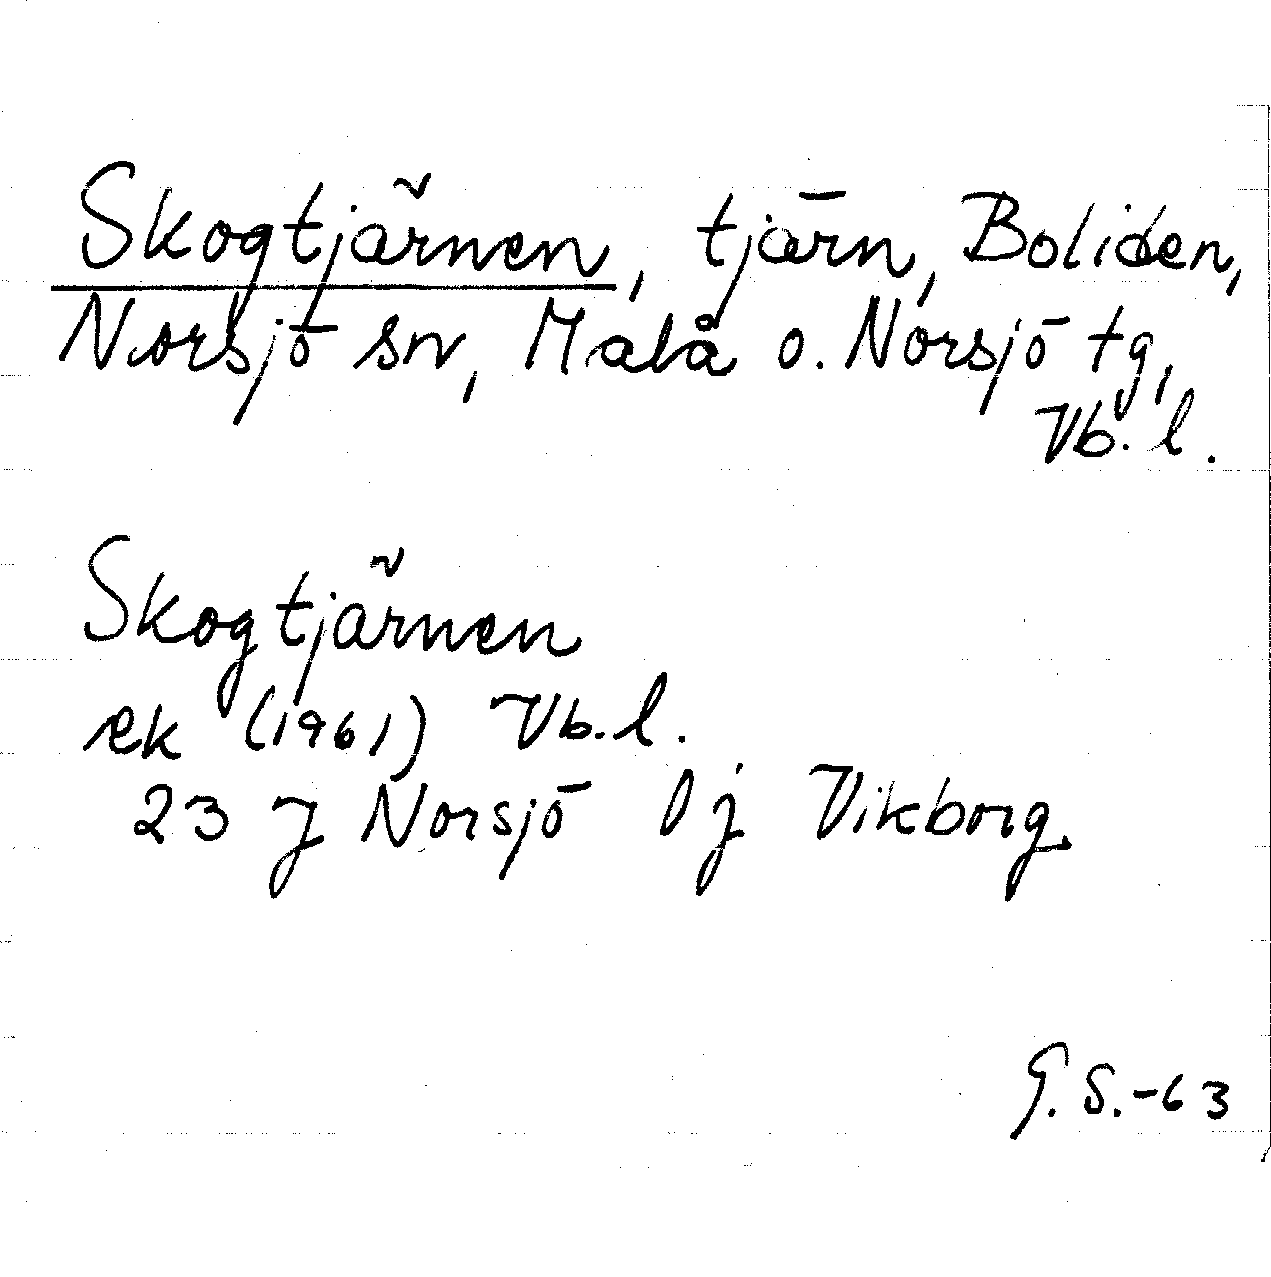 Skogtjärnen, tjärn, Boliden,
Norsjö sn, Malå o. Norsjö tg,
Vb. l.
Skogtjärnen
ek (1961) Vb. l.
23 J Norsjö 0 j Vikborg
G. S. -63